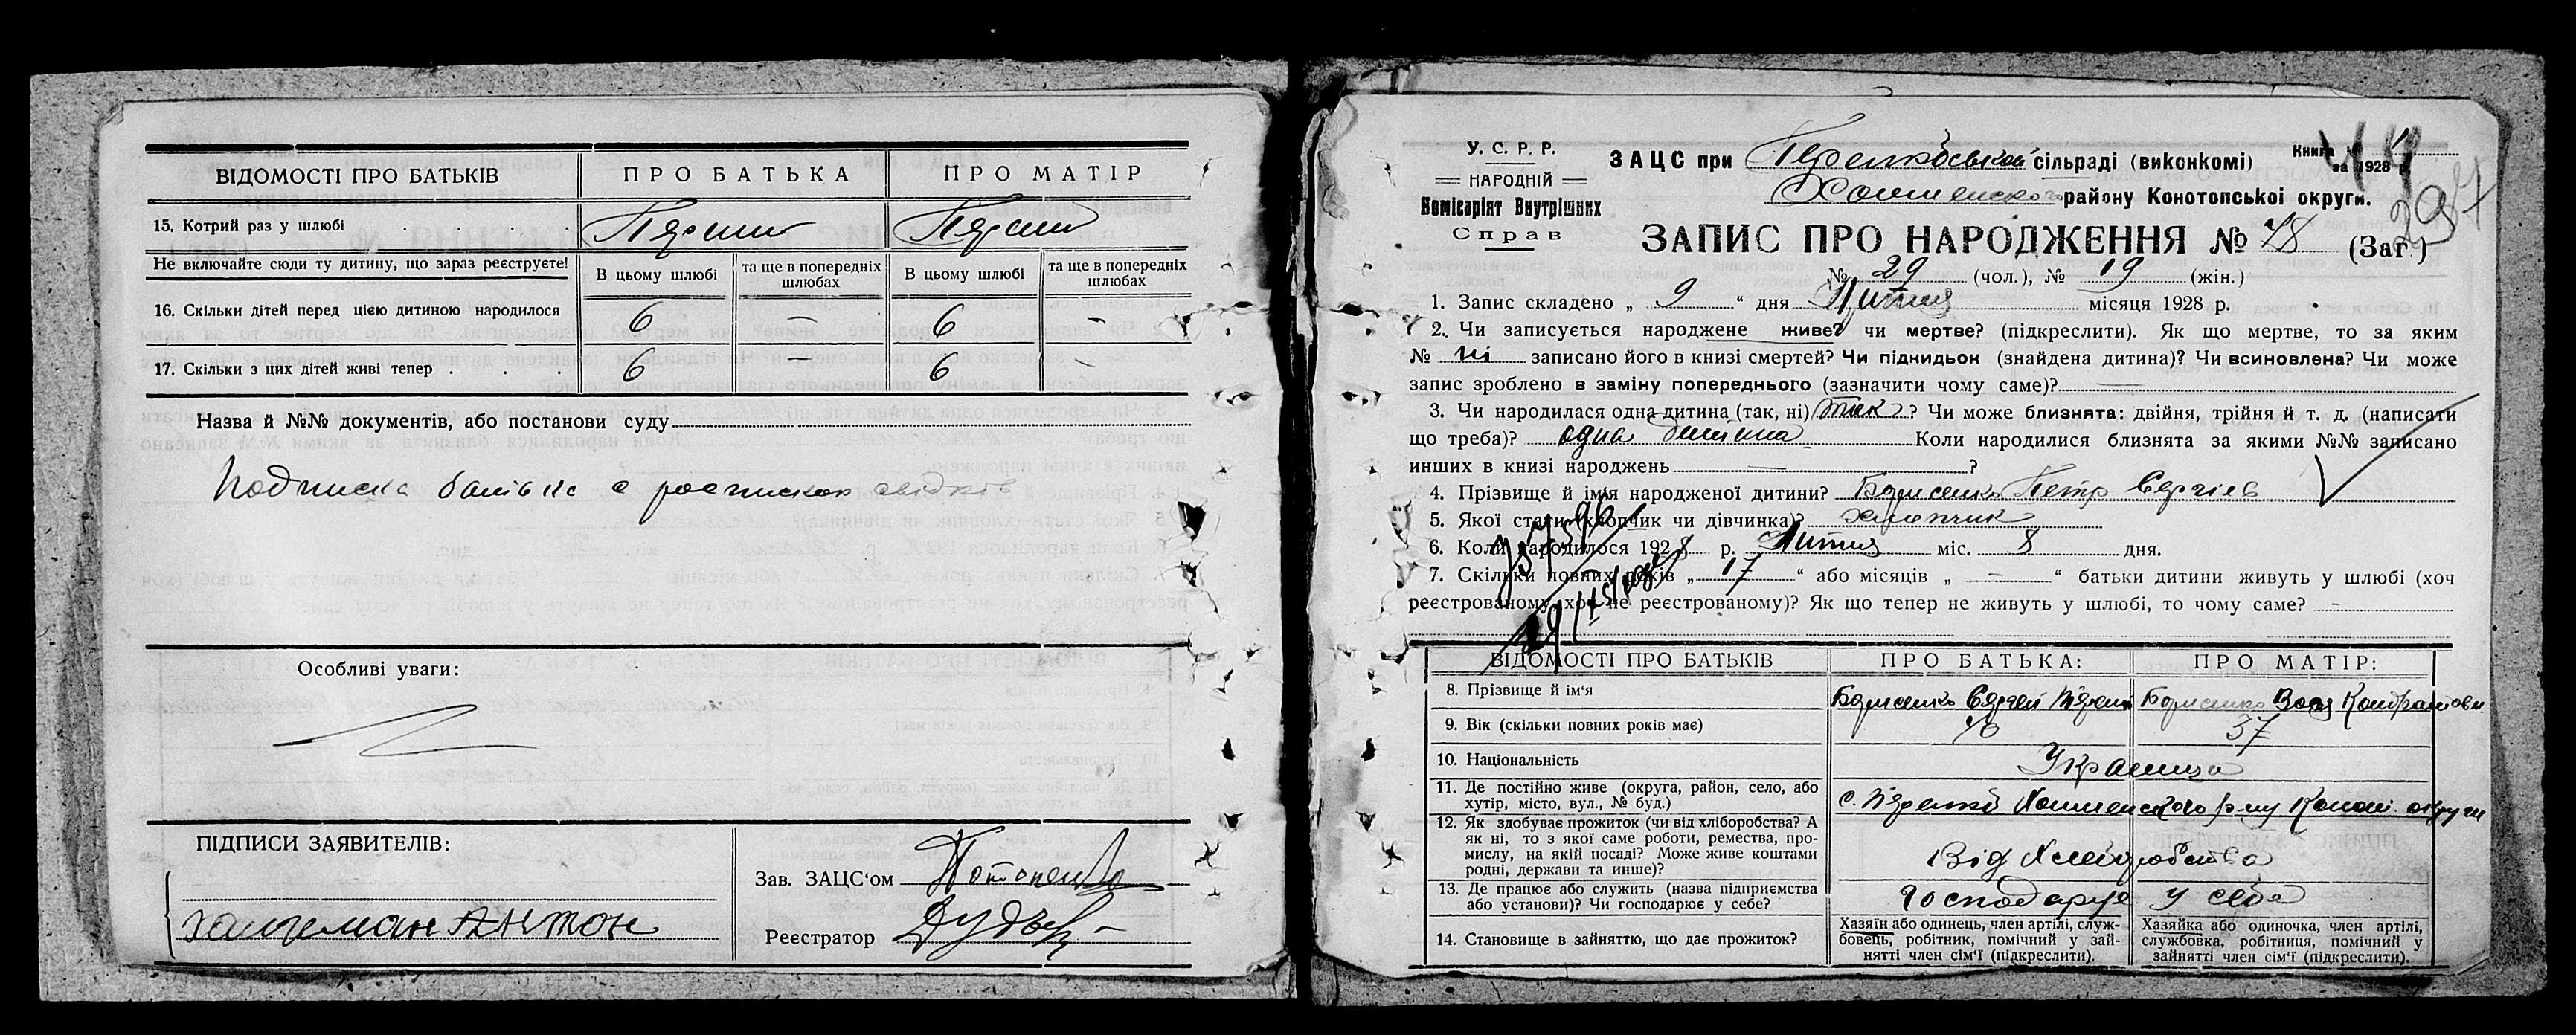 ВІДОМОСТІ ПРО БАТЬКІВ
ПРО БАТЬКА
ПРО МАТІР
15. Котрий раз у шлюбі . . . .
Перший
Перший
Не включайте сюди ту дитину, що зараз реєструєте!
В цьому шлюбі
та ще в попередніх шлюбах
В цьому шлюбі
та ще в попередніх шлюбах
16. Скільки дітей перед цією дитиною народилося
6 — 6 -
17. Скільки з цих дітей живі тепер . . .
6 — 6 -
Назва й №№ документів, або постанови суду
Подписка батька с роспискою свідків
Особливі уваги:
ПІДПИСИ ЗАЯВИТЕЛІВ:
Антон
Зав. ЗАЦС‘ом Потопенко
Реєстратор
У. С. Р. Р.
НАРОДНІЙ
Комісаріят Внутрішніх
Справ
ЗАЦС при сільраді (виконкомі)
Книга
за 1928 р.
району Конотопської округи.
297
ЗАПИС ПРО НАРОДЖЕННЯ № 48 (Заг.)
№ 29 (чол.), № 19 (жін.)
1. Запис складено „ 9 “ дня Липня місяця 1928 р.
2. Чи записується народжене живе? чи мертве? (підкреслити). Як що мертве, то за яким
№ ні записано його в книзі смертей? Чи піднидьок (знайдена дитина)? Чи всиновлена? Чи може
запис зроблено в заміну попереднього (зазначити чому саме)? —
3. Чи народилася одна дитина (так, ні) так ? Чи може близнята: двійня, трійня й т. д. (написати
що треба)? одна дитина Коли народилися близнята за якими №№ записано
инших в книзі народжень — ?
4. Прізвище й імʼя народженої дитини? Борисенко Петр Сергіев
5. Якої стати (хлопчик чи дівчинка)? хлопчик
6. Коли народилося 1928 р. Липня міс. 8 дня.
7. Скільки повних років „ 17 “ або місяців „ — “ батьки дитини живуть у шлюбі (хоч
реєстрованому, хоч не реєстрованому)? Як що тепер не живуть у шлюбі, то чому саме? -
ВІДОМОСТІ ПРО БАТЬКІВ
ПРО БАТЬКА:
ПРО МАТІР:
8. Прізвище й ім‘я
Борисенко Сергей
Борисенко Кондратовн
9. Вік (скільки повних років має)
37
10. Національність
Українці
11. Де постійно живе (округа, район, село, або
хутір, місто, вул., № буд.)
с. р-ну Коноп. округи
12. Як здобуває прожиток (чи від хліборобства? А
як ні, то з якої саме роботи, ремества, про-
мислу, на якій посаді? Може живе коштами
родні, держави та инше)?
Від Хліборобства
13. Де працює або служить (назва підприємства
або установи)? Чи господарює у себе?
Господарує у себе
14. Становище в зайняттю, що дає прожиток?
Хазяїн або одинець, член артілі, служ-
бовець, робітник, помічний у зай-
нятті член сім‘ї (підкреслити).
Хазяйка або одиночка, член артілі,
службовка, робітниця, помічний у
зайнятті член сім‘ї (підкреслити).